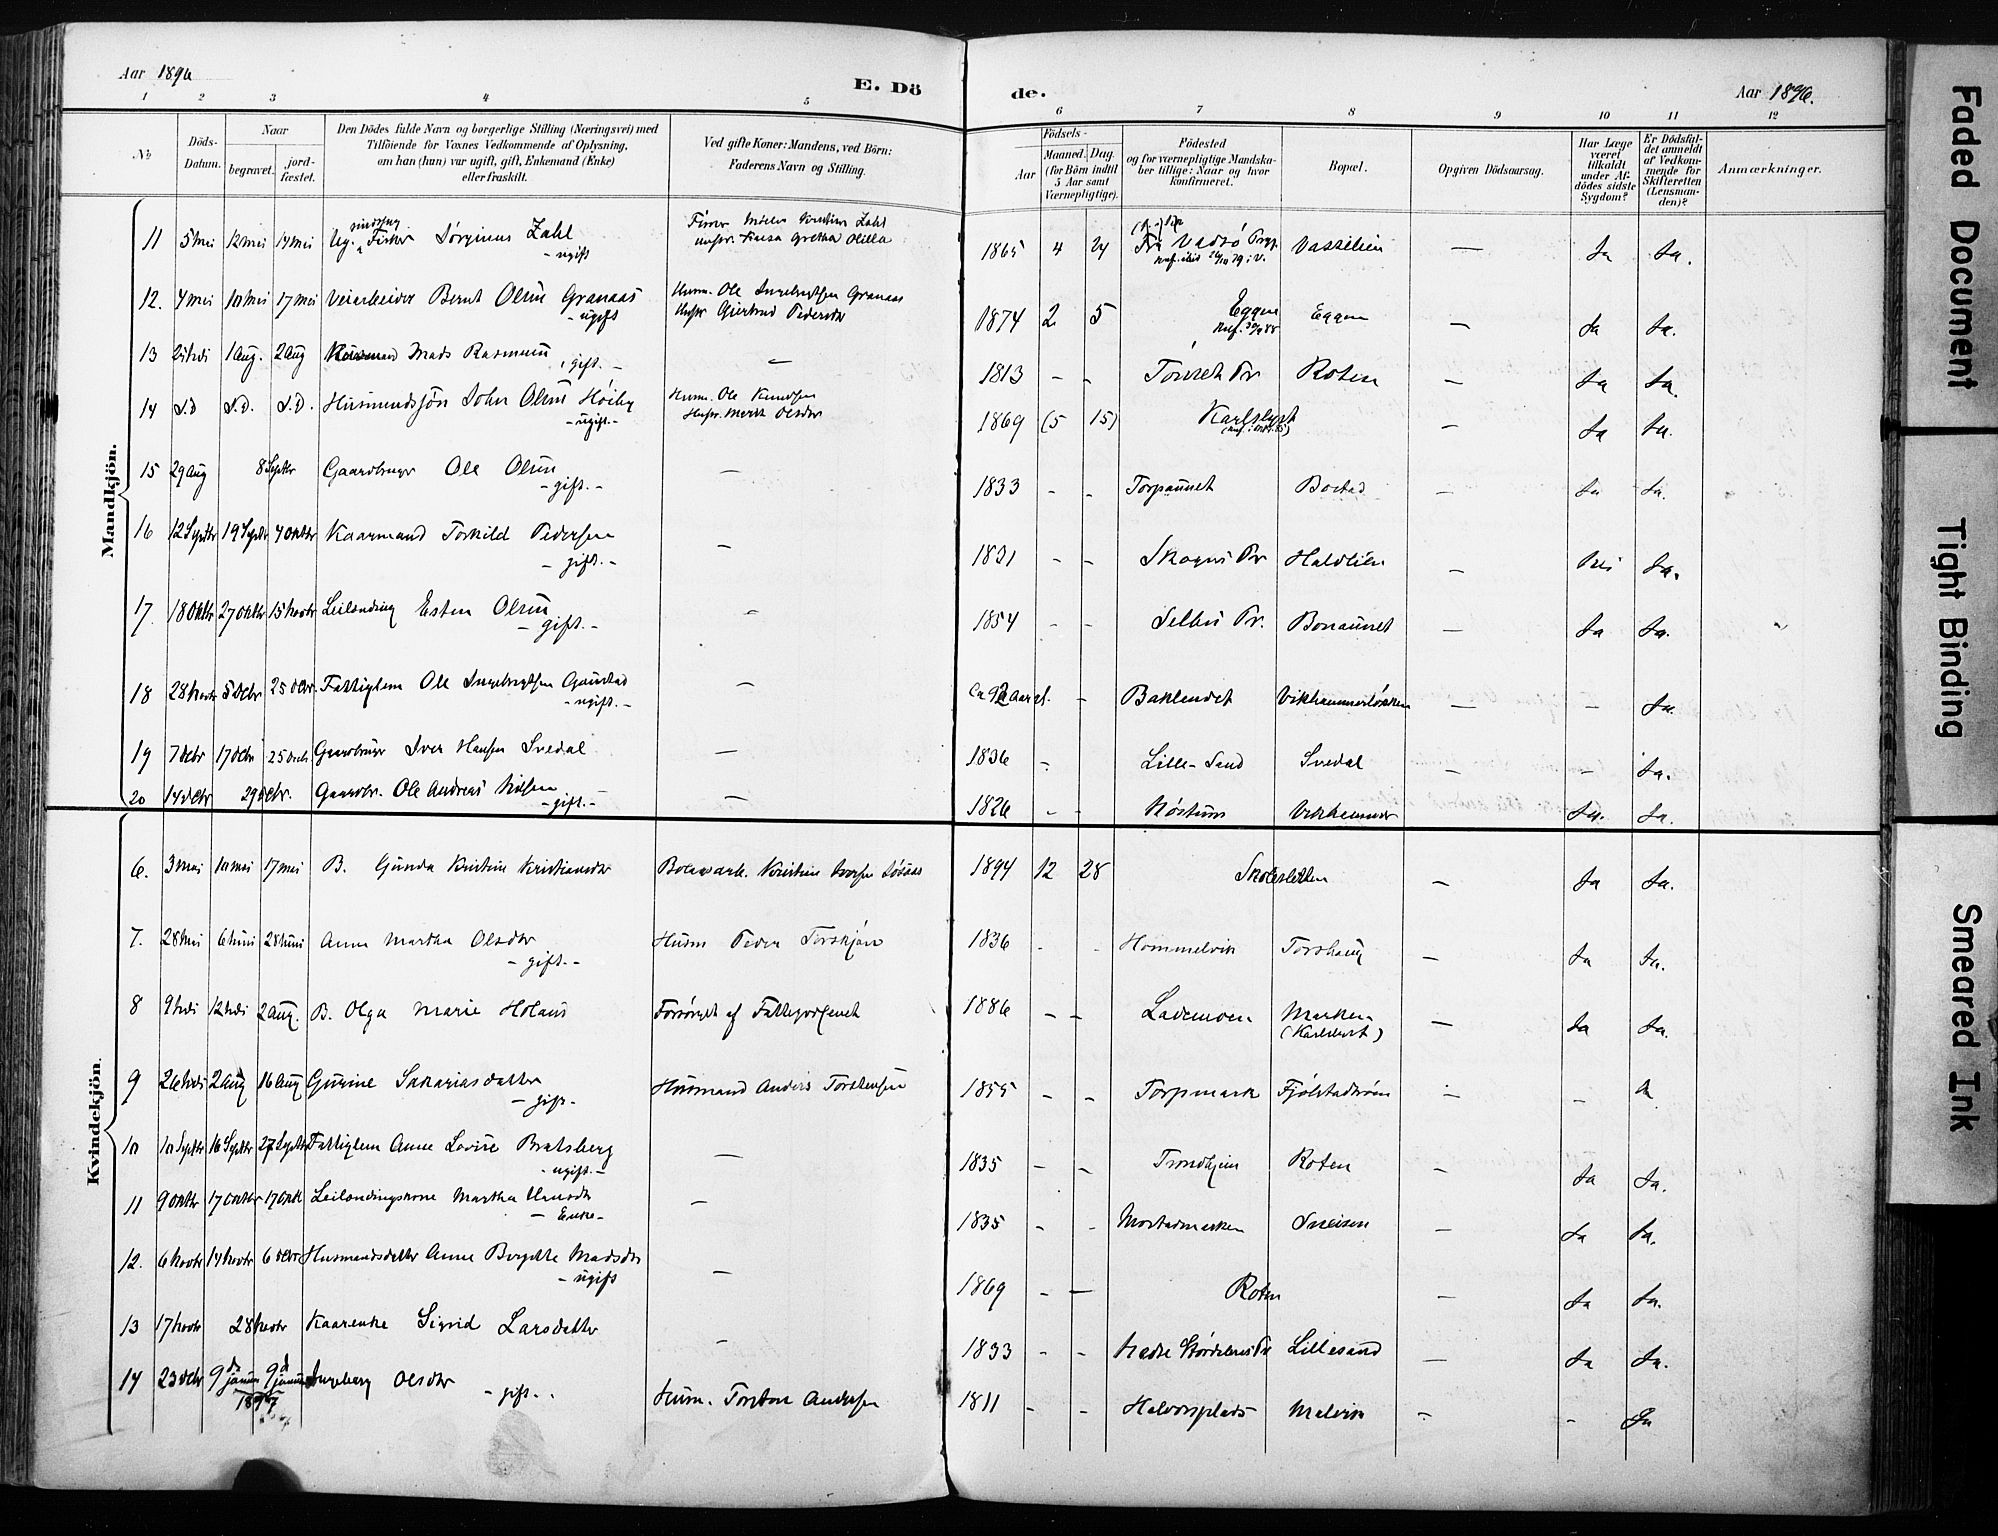 Aar 1896
E. Dö
de.
Aar 1896.
1 2 3 4 5 6 7 8 9 10 11 12
No
Döds-Datum.
Naar
begravet.
jord-fæstet.
Den Dödes fulde Navn og borgerlige Stilling (Næringsvei) med
Tilföiende for Voxnes Vedkommende af Oplysning,
om han (hun) var ugift, gift, Enkemand (Enke)
eller fraskilt.
Ved gifte Koner: Mandens, ved Börn:
Faderens Navn og Stilling.
Födsels-
Aar
Maaned. Dag.
(for Börn indtil
5 Aar samt
Værnepligtige).
Födested
og for værnepligtige Mandska-
ber tillige: Naar og hvor
konfirmeret.
Bopæl.
Opgiven Dödsaarsag.
Har Læge
været
tilkaldt
under Af-
dödes sidste
Sygdom?
Er Dödsfal-
det anmeldt
af Vedkom-
mende for
Skifteretten
(Lensman-
den)?
Anmærkninger.
Mandkjön.
11 5 mai 12 mai 17 mai Fisker Jørginus Zahl - ugift 1865 4 24 Vadsö Vasselien — Ja Ja.
12. 4 mai 10 mai 17 mai Veiarbeider Bernt Olsen Granaas - ugift Husm. Ole Ingebrigtsen Granaas Gjertrud Pedersdtr 1874 2 5 Eggen Eggen — Ja Ja.
13 1 Aug. 2 Aug Mads Rasmussen , gift. - — 1813 - - Pr Roten — Ja Ja.
14 S.D S.D. S.D. Husmandssøn John Olsen Høiby - ugift. - Husm. Ole Knudsen Marit Olsdtr 1869 (5 15) Karlslyst — Ja Ja.
15 29 Aug 8 Septbr Gaardbruger Ole Olsen - gift. - — 1833 - - Torpaunet Bostad — Ja Ja.
16 12 Septbr 19 Septbr 4 Oktbr Kaarmand Torkild Pedersen - gift. - — 1831 - - Skogns Pr Haldlien — Nei Ja.
17. 18 Oktbr 27 Oktbr 15 Novbr Leilænding Esten Olsen - gift. - — 1854 - - Selbu Pr. Bonaunet — Ja Ja.
18 28 Novbr 5 Decbr 25 Decbr. Fattiglem Ole Ingebrigtsen Gaustad - ugift. - — Ca 92 Aar gl. - Baklandet Vikhammerløkken — - Ja.
19 7 Decbr 17 Decbr 25 Decb. Gaardbruger Iver Hansen Svedal — 1836 - Lille-Sand Svedal — - Ja.
20 14 Decbr 29 Decbr. Gaardbr. Ole Andreas Nilsen - gift. - — 1826 - - Røstum Vikhammer — Ja. Ja.
Kvindekjön.
6. 3 mai 10 mai 17 mai B. Gunda Kristine Kristiansdtr 1894 12 28 Skolesletten — Ja Ja.
7. 28 Mai 6 Juni 28 Juni Anne Martha Olsdtr - gift. - Husm Peder 1836 - - Hommelvik Torshaug — Ja Ja.
8 9 Juli 12 Juli 2 Aug. B. Olga Marie Holaus Forsørget af Fattigvæsenet 1886 - - Lademoen Marken (Karlslyst) — Ja Ja.
9 26 Juli 2 Aug 16 Aug Gurine Sakariasdatter - gift - Husmand Anders Torstensen 1855 - - Torpmark — - Ja
10 10 Septbr 16 Septbr 27 Septbr Fattiglem Anne Lovise Bratsberg - ugift. - — 1835 - - Trondhjem Roten — Ja Ja.
11 9 Oktbr 17 Oktbr 17 Oktb Leilændingskone Martha Hansdtr - Enke - — 1835 - - Mostadmarken Sneisen — Ja Ja.
12. 6 Novbr 14 Novbr 6 Decbr Husmandsdatter Anne Birgitte Madsdtr - ugift — 1869 - — Roten — Ja Ja.
13 17 Novbr 28 Novbr Kaarenke Sigrid Larsdatter — 1833 - - Nedre Størdalens Pr Lillesand — Ja Ja.
14 23 Decbr 9de Januar 9d Januar 1897 Ingeborg Olsdtr - gift - . Husm. Torsten Andersen 1811 - - Halvorsplads Malvik - - Ja
Faded Document
Tight Binding
Smeared Ink